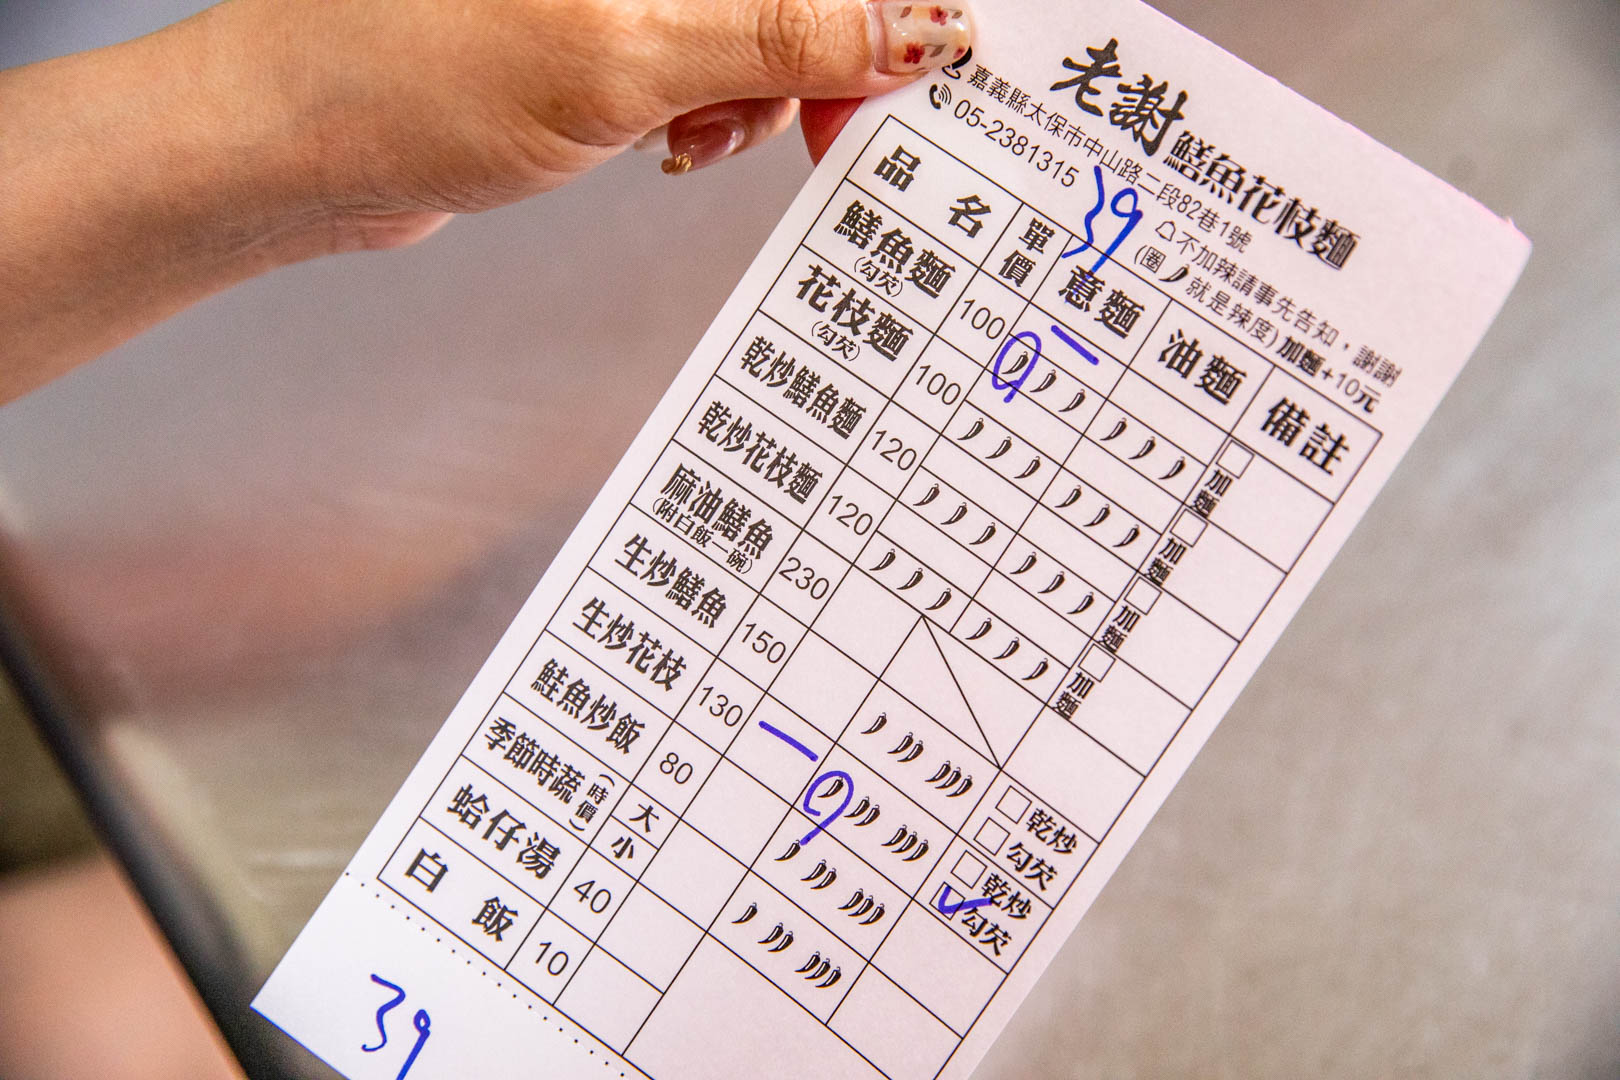 老謝鱔魚花枝麵
嘉義縣太保市中山路二段82巷1號
05-2381315
39
不加辣請事先告知，謝謝
(圈 就是辣度) 加麵+10元
品名 單價 意麵 油麵 備註
鱔魚麵(勾芡) 100 一 加麵
花枝麵(勾芡) 100 加麵
乾炒鱔魚麵 120 加麵
乾炒花枝麵 120 加麵
麻油鱔魚(附白飯一碗) 230
生炒鱔魚 150 乾炒 勾芡
生炒花枝 130 一 乾炒 勾芡
鮭魚炒飯 80
季節時蔬(時價) 大 小
蛤仔湯 40
白飯 10
39